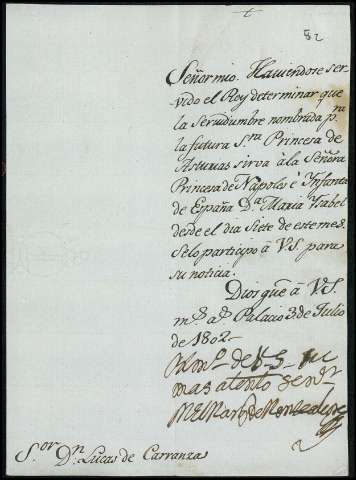 52
Señor mio. Haviendose ser-
vido el Rey determinar que
la Servidumbre nombrada pª
la futura Sra Princesa de
Asturias sirva à la Señora
Princesa de Napoles è Infanta
de España Dª Maria Ysabel
desde el dia Siete de este mes.
Selo participo à V.S. para
su noticia.
Dios gue à V.S.
ms as Palacio 3 de Julio
de 1802.
de VS su
mas atento servr
El Marqs de
S.or Dn Lucas de Carranza